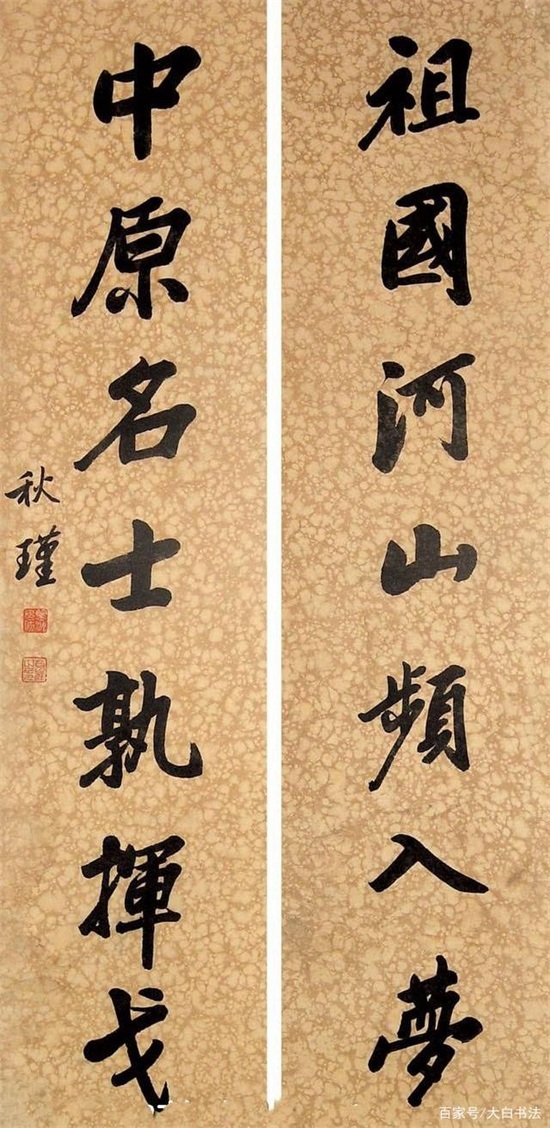 祖國河山頻入夢
中原名士孰揮戈
秋瑾
百家号/大白书法